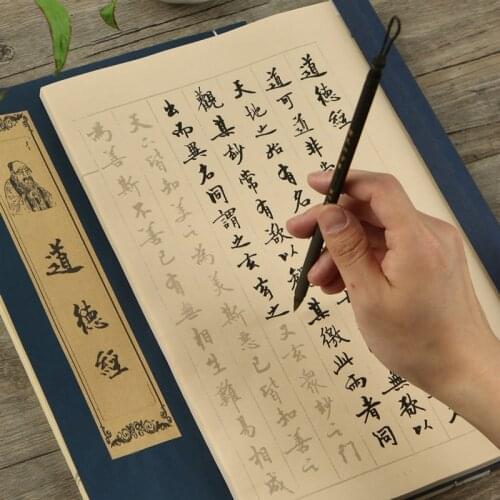 道德經
道可道非
天地之始有名 無欲以
觀其妙常有欲以觀其徼此兩者同
出而異名同謂之玄玄之又玄眾妙之門
天下皆知美之為美斯惡已皆知善之
為善斯不善已有無相生難易相成
道德經